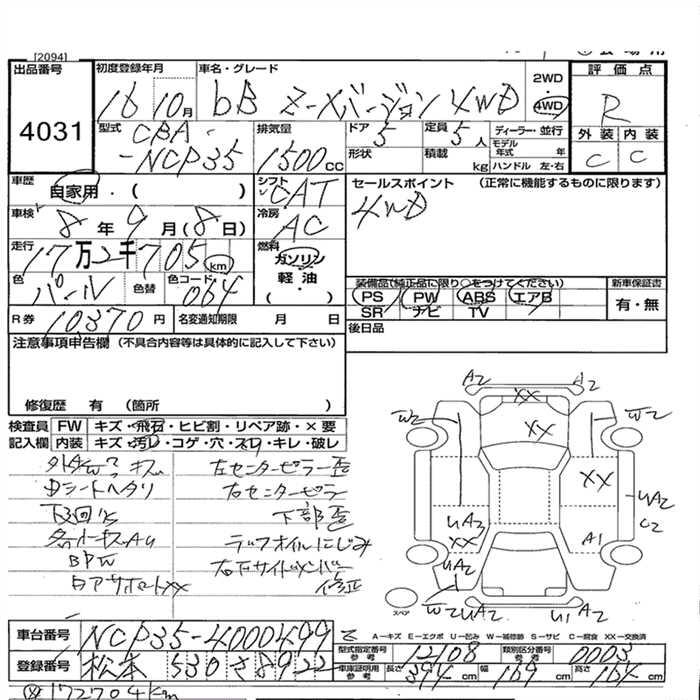 [2094]
出品番号
4031
初度登録年月
16 10月
車名・グレード
bB Z-Xバージョン 4WD
2WD
・
4WD
評価点
R
外装 内装
C C
型式
CBA-
-NCP35
排気量
1500cc
ドア
5
形状
定員
5人
積載
kg
ディーラー・並行
モデル
年式 年
ハンドル 左・右
車歴
自家用・( )
シフト
CAT
セールスポイント (正常に機能するものに限ります)
4WD
車検
8年9月(8日)
冷房
AC
走行
17万2千705km
燃料
ガソリン
軽油
( ・ )
色
パール
色替
色コード
064
装備品(純正品に限り○をつけてください)
PS PW ABS エアB
SR ナビ TV
新車保証書
有・無
R券 10,370円
名変通知期限 月 日
後日品
注意事項申告欄(不具合内容等は具体的に記入して下さい)
修復歴 有 (箇所 )
検査員
記入欄
FW キズ・飛石・ヒビ割・リペア跡・×要
内装 キズ・汚レ・コゲ・穴・スレ・キレ・破レ
外装W2 キズ
シートヘタリ
下回りS
BPW
左センターピラー歪
右センターピラー
下部歪
ラックオイルにじみ
右下サイドメンバー
修正
A2 XX A2
W2 XX W2
XX
UA2
C2
UA3
XX
A1
UA2
W2UA2 U1A2
スペア
A-キズ E-エクボ U-凹み W-補修跡 S-サビ C-腐食 XX-交換済
車台番号 NCP35-4000499
登録番号 松本 530 さ 8922
型式指定番号
参考
12108
類別区分番号
参考
0003
車庫証明用
参考
長さ 394cm 幅 169cm 高さ 164cm
172704km